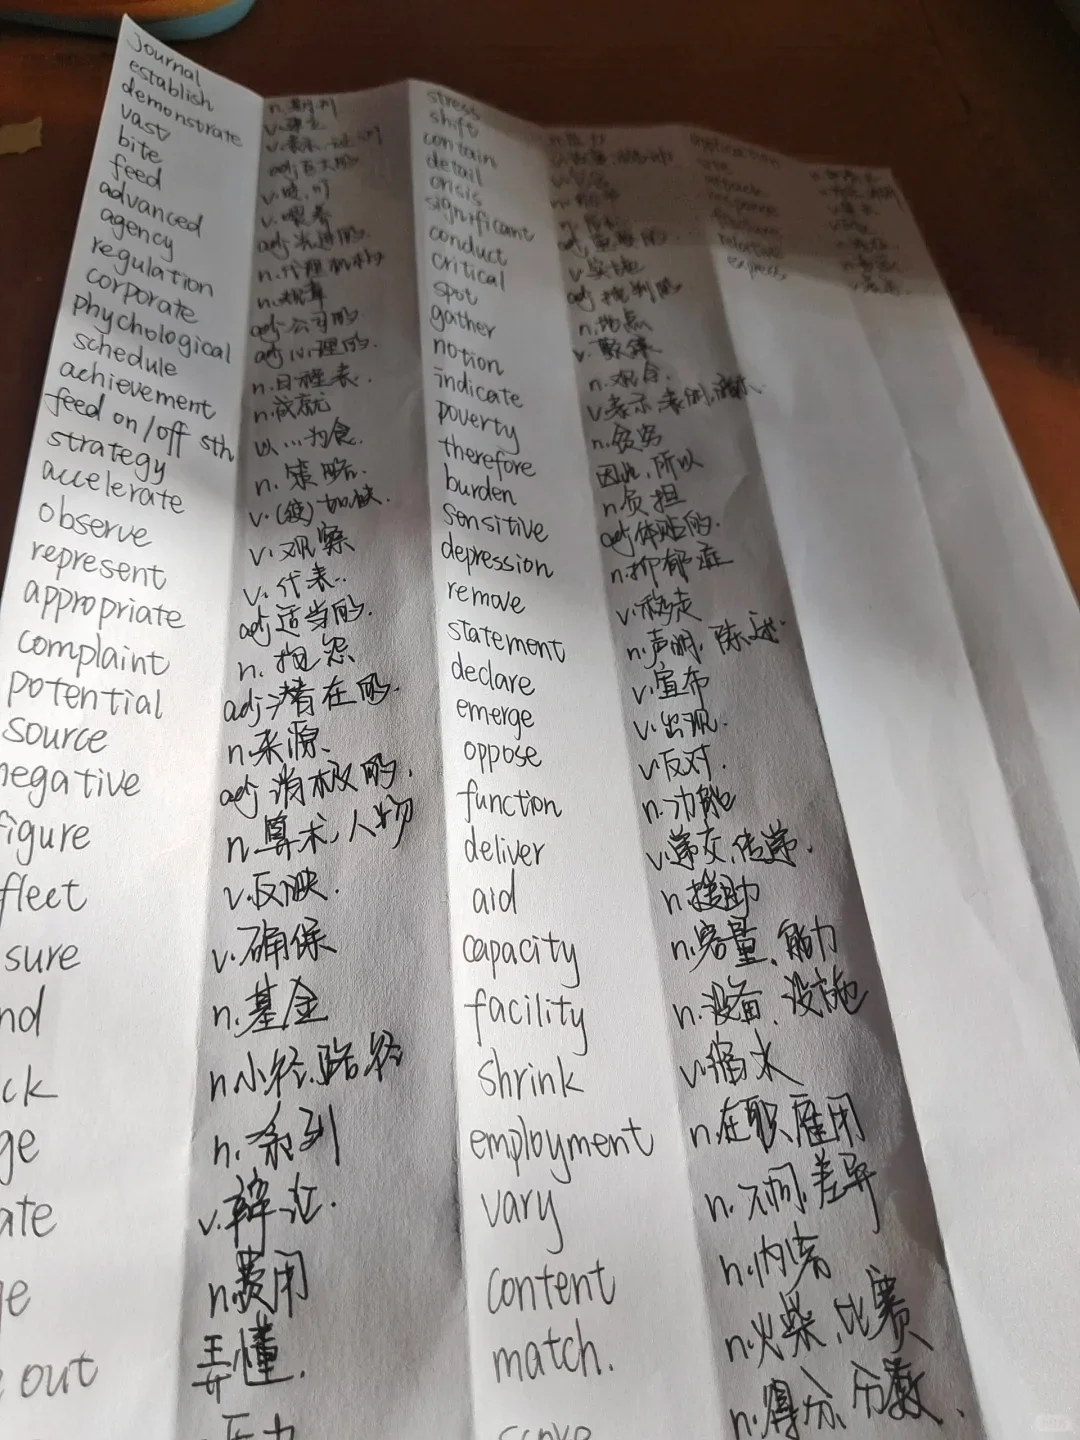 journal
establish
demonstrate
vast
bite
feed
advanced
agency
regulation
corporate
phychological
schedule
achievement
feed on/off sth
strategy
accelerate
observe
represent
appropriate
complaint
potential
source
negative
figure
flect
sure
nd
ck
ge
ate
ge
out
n.期刊
v.建立
adj.巨大的
v.咬,叮
v.喂养
adj.先进的.
n.代理机构
n.规章
adj.公司的.
adj.心理的.
n.日程表.
n.成就
以...为食.
n.策略.
v.(使)加快.
v.观察
v.代表.
adj.适当的.
n.抱怨
adj.潜在的.
n.来源.
adj.消极的.
n.算术,人物
v.反映.
v.确保
n.基金
n.小径,路径
n.系列
v.辩论.
n.费用
弄懂.
压力
stress
shift
contain
detail
crisis
significant
conduct
critical
spot
gather
notion
indicate
poverty
therefore
burden
sensitive
depression
remove
statement
declare
emerge
oppose
function
deliver
aid
capacity
facility
shrink
employment
vary
content
match.
n.压力
adj.重要的.
v.实施
adj.批判的.
n.地点
v.聚集
n.观念.
v.表示,表明,暗示.
n.贫穷
因此,所以
n.负担
adj.体贴的.
n.抑郁症
v.移走
n.声明,陈述.
v.宣布
v.出现.
v.反对.
n.功能
v.递交,传递.
n.援助
n.容量、能力
n.设备、设施
v.缩水
n.在职,雇用
n.不同,差异
n.内容
n.火柴,比赛
n.得分、分数.
application
attack
response
relative
express